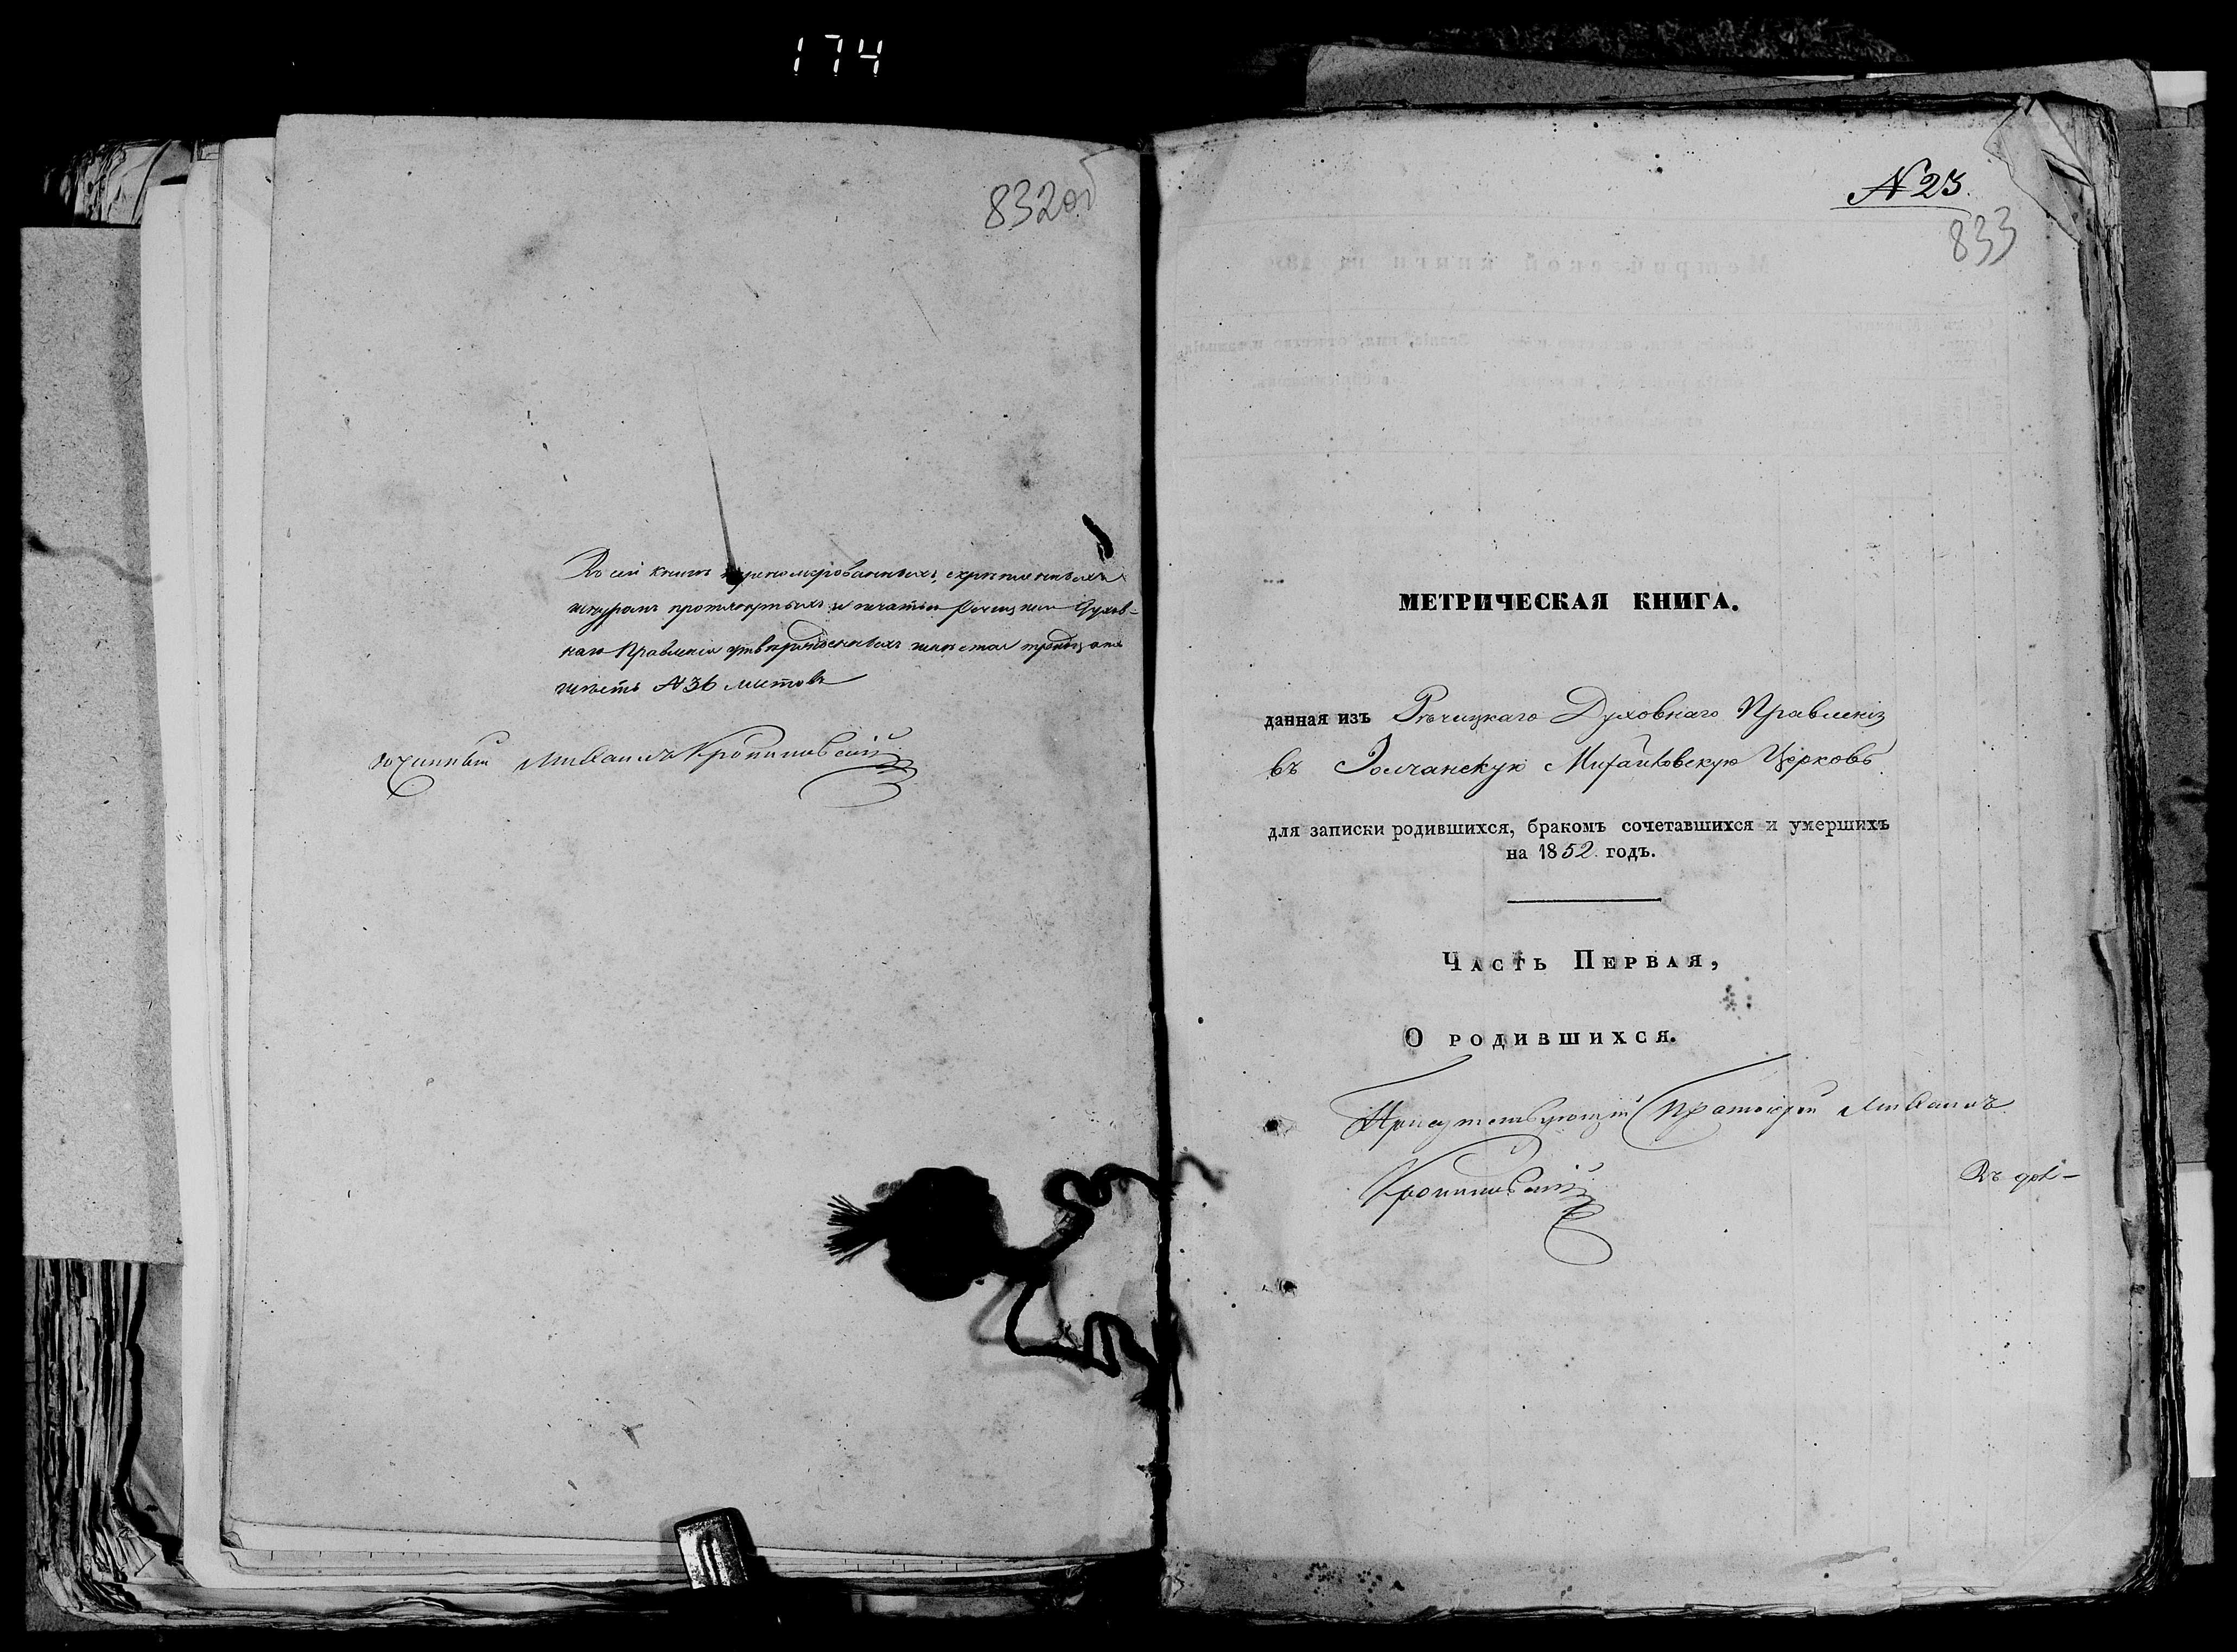 174
832об
Въ сей книгѣ перенумерованныхъ, скрѣпленныхъ
шнуромъ протянутыхъ и печатью Речицкаго Духов-
наго Правленія утвержденныхъ листовъ тридцать
шесть №36 листовъ
Михаилъ
№ 23.
833
МЕТРИЧЕСКАЯ КНИГА.
данная изъ Рѣчицкаго Духовнаго Правленія
въ Михайловскую Церковь
для записки родившихся, бракомъ сочетавшихся и умершихъ
на 1852 годъ.
Часть Первая,
О родившихся.
Присутствующій Протоіерей Михаилъ
Въ